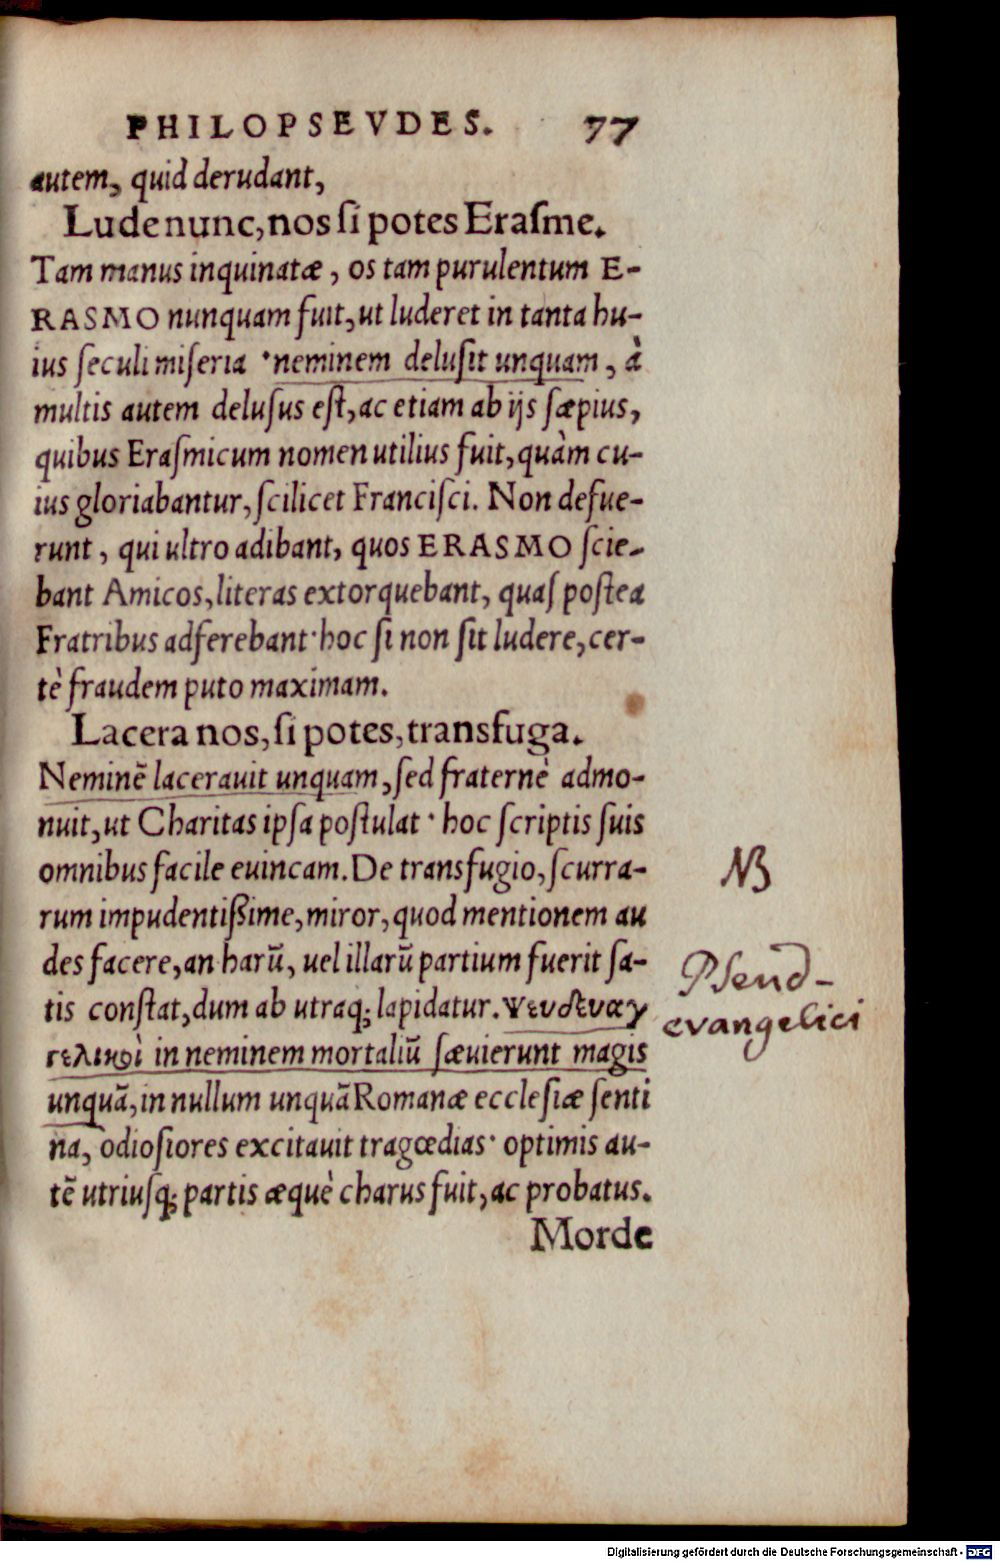 PHILOPSEVDES. 77
autem, quid derudant,
Lude nunc, nos ſi potes Eraſme.
Tam manus inquinatæ, os tam purulentum E-
RASMO nunquam fuit, ut luderet in tanta hu-
ius ſeculi miſeria · neminem deluſit unquam, à
multis autem deluſus eſt, ac etiam ab ijs ſæpius,
quibus Eraſmicum nomen utilius fuit, quàm cu-
ius gloriabantur, ſcilicet Franciſci. Non defue-
runt, qui ultro adibant, quos ERASMO ſcie-
bant Amicos, literas extorquebant, quaſ poſtea
Fratribus adferebant · hoc ſi non ſit ludere, cer-
tè fraudem puto maximam.
Lacera nos, ſi potes, transfuga.
Neminē lacerauit unquam, ſed fraternè admo-
nuit, ut Charitas ipſa poſtulat · hoc ſcriptis ſuis
omnibus facile euincam. De transfugio, ſcurra-
rum impudentißime, miror, quod mentionem au
NB
des facere, an harū, uel illarū partium fuerit ſa-
tis conſtat, dum ab utraq; lapidatur. Ψευδευαγ
γελικοὶ in neminem mortaliū ſæuierunt magis
Pseud-
evangelici
unquā, in nullum unquā Romanæ eccleſiæ ſenti
na, odioſiores excitauit tragœdias · optimis au-
tē utriuſq; partis æquè charus fuit, ac probatus.
Morde
Digitalisierung gefördert durch die Deutsche Forschungsgemeinschaft - DFG